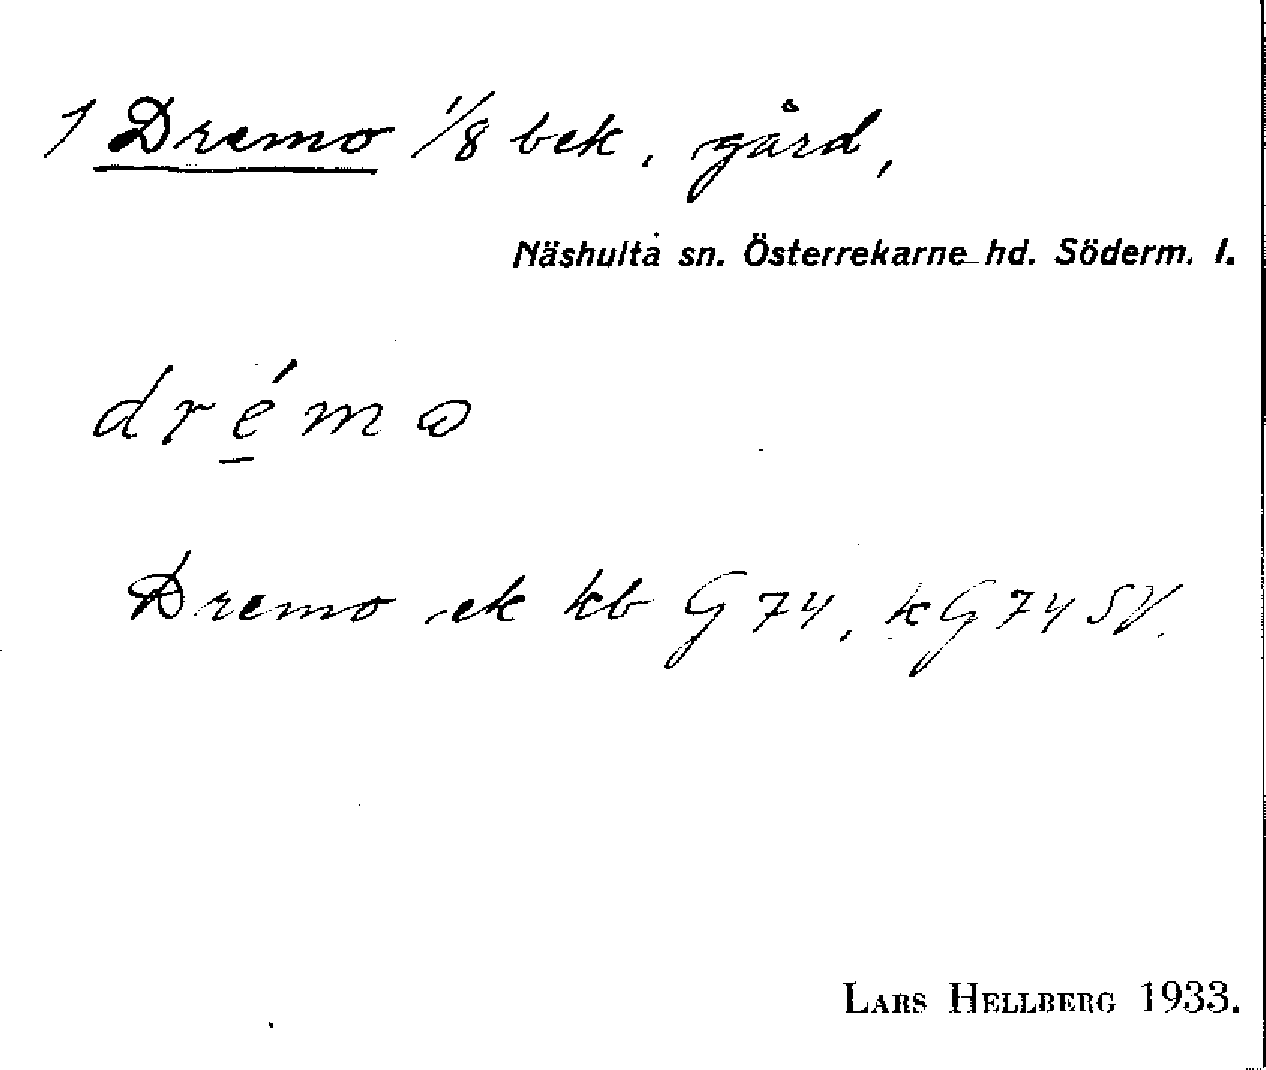 1 Dremo 1/8 bek. gård,
Näshulta sn. Österrekarne hd. Söderm. l.
drémɷ
Dremo ek kb G 74, k G 74 SV.
LARS HELLBERG 1933.